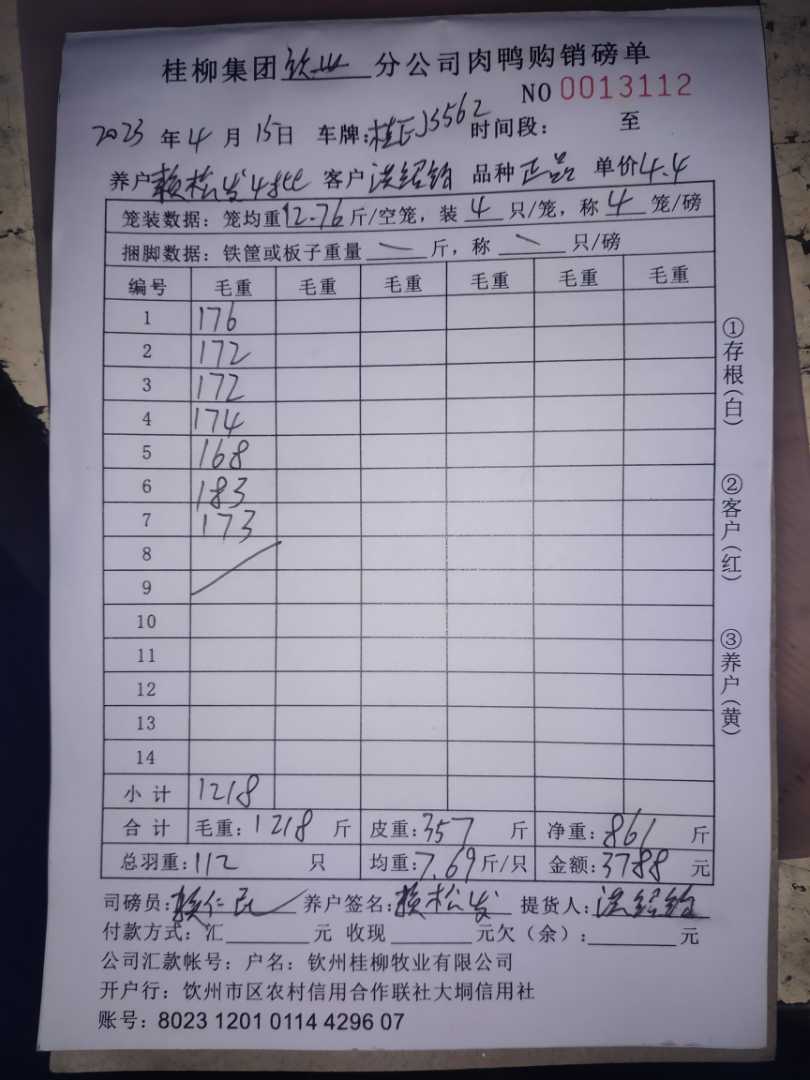 桂柳集团钦州分公司肉鸭购销磅单
NO 0013112
2023年4月15日 车牌:桂EJ3562 时间段: 至
养户赖松发4批 客户洪绍铂 品种正品 单价4.4
笼装数据: 笼均重12.76斤/空笼, 装4只/笼, 称4笼/磅
捆脚数据: 铁筐或板子重量 — 斤, 称 — 只/磅
编号 毛重 毛重 毛重 毛重 毛重 毛重
1 176
2 172
3 172
4 174
5 168
6 183
7 173
8
9
10
11
12
13
14
小计 1218
合计 毛重:1218斤 皮重:357斤 净重:861斤
总羽重:112只 均重:7.69斤/只 金额:3788元
司磅员:赖仁民 养户签名:赖松发 提货人:洪绍铂
付款方式: 汇 元 收现 元欠(余): 元
公司汇款帐号: 户名: 钦州桂柳牧业有限公司
开户行: 钦州市区农村信用合作联社大垌信用社
账号: 8023 1201 0114 4296 07
①存根(白)
②客户(红)
③养户(黄)